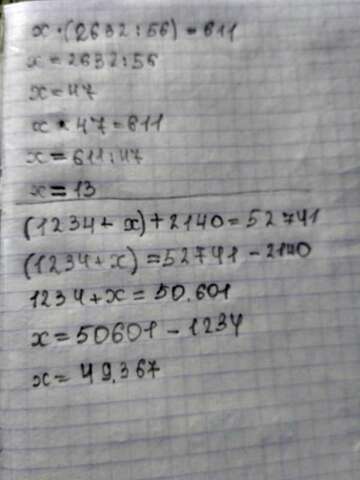 x·(2632:56)=611
x=2632:56
x=47
x·47=611
x=611:47
x=13
(1234+x)+2140=52741
(1234+x)=52741-2140
1234+x=50.601
x=50601-1234
x=49.367